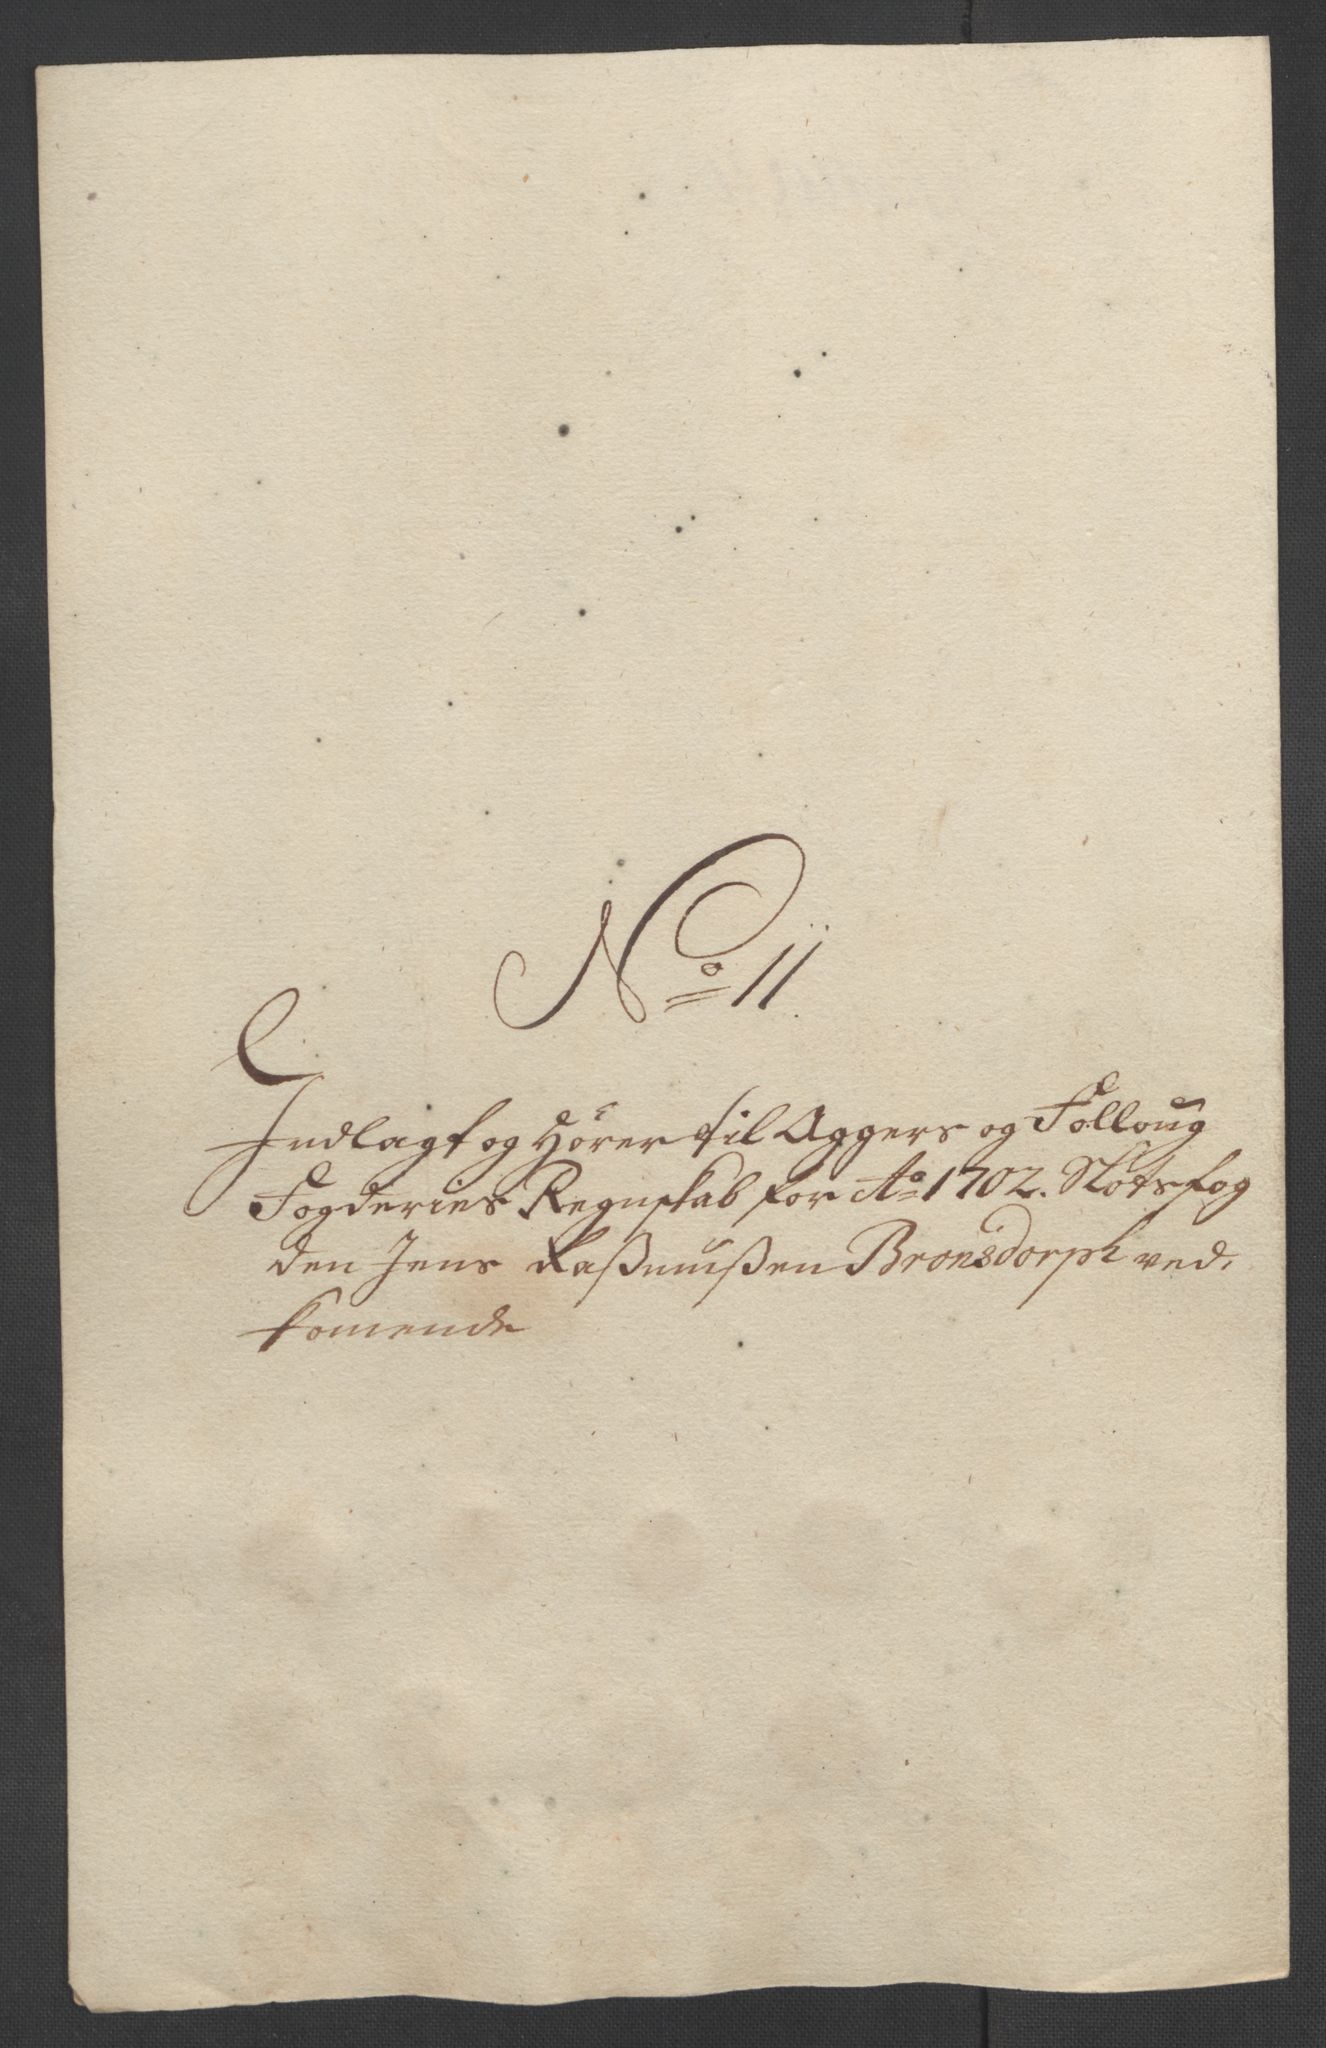 No 11
Indlagt og Hörer til Aggers og Folloug
Fogderies Regnskab for Ao 1702. Slotsfog
den Jens Raßmußen Bronsdorph ved,
komende